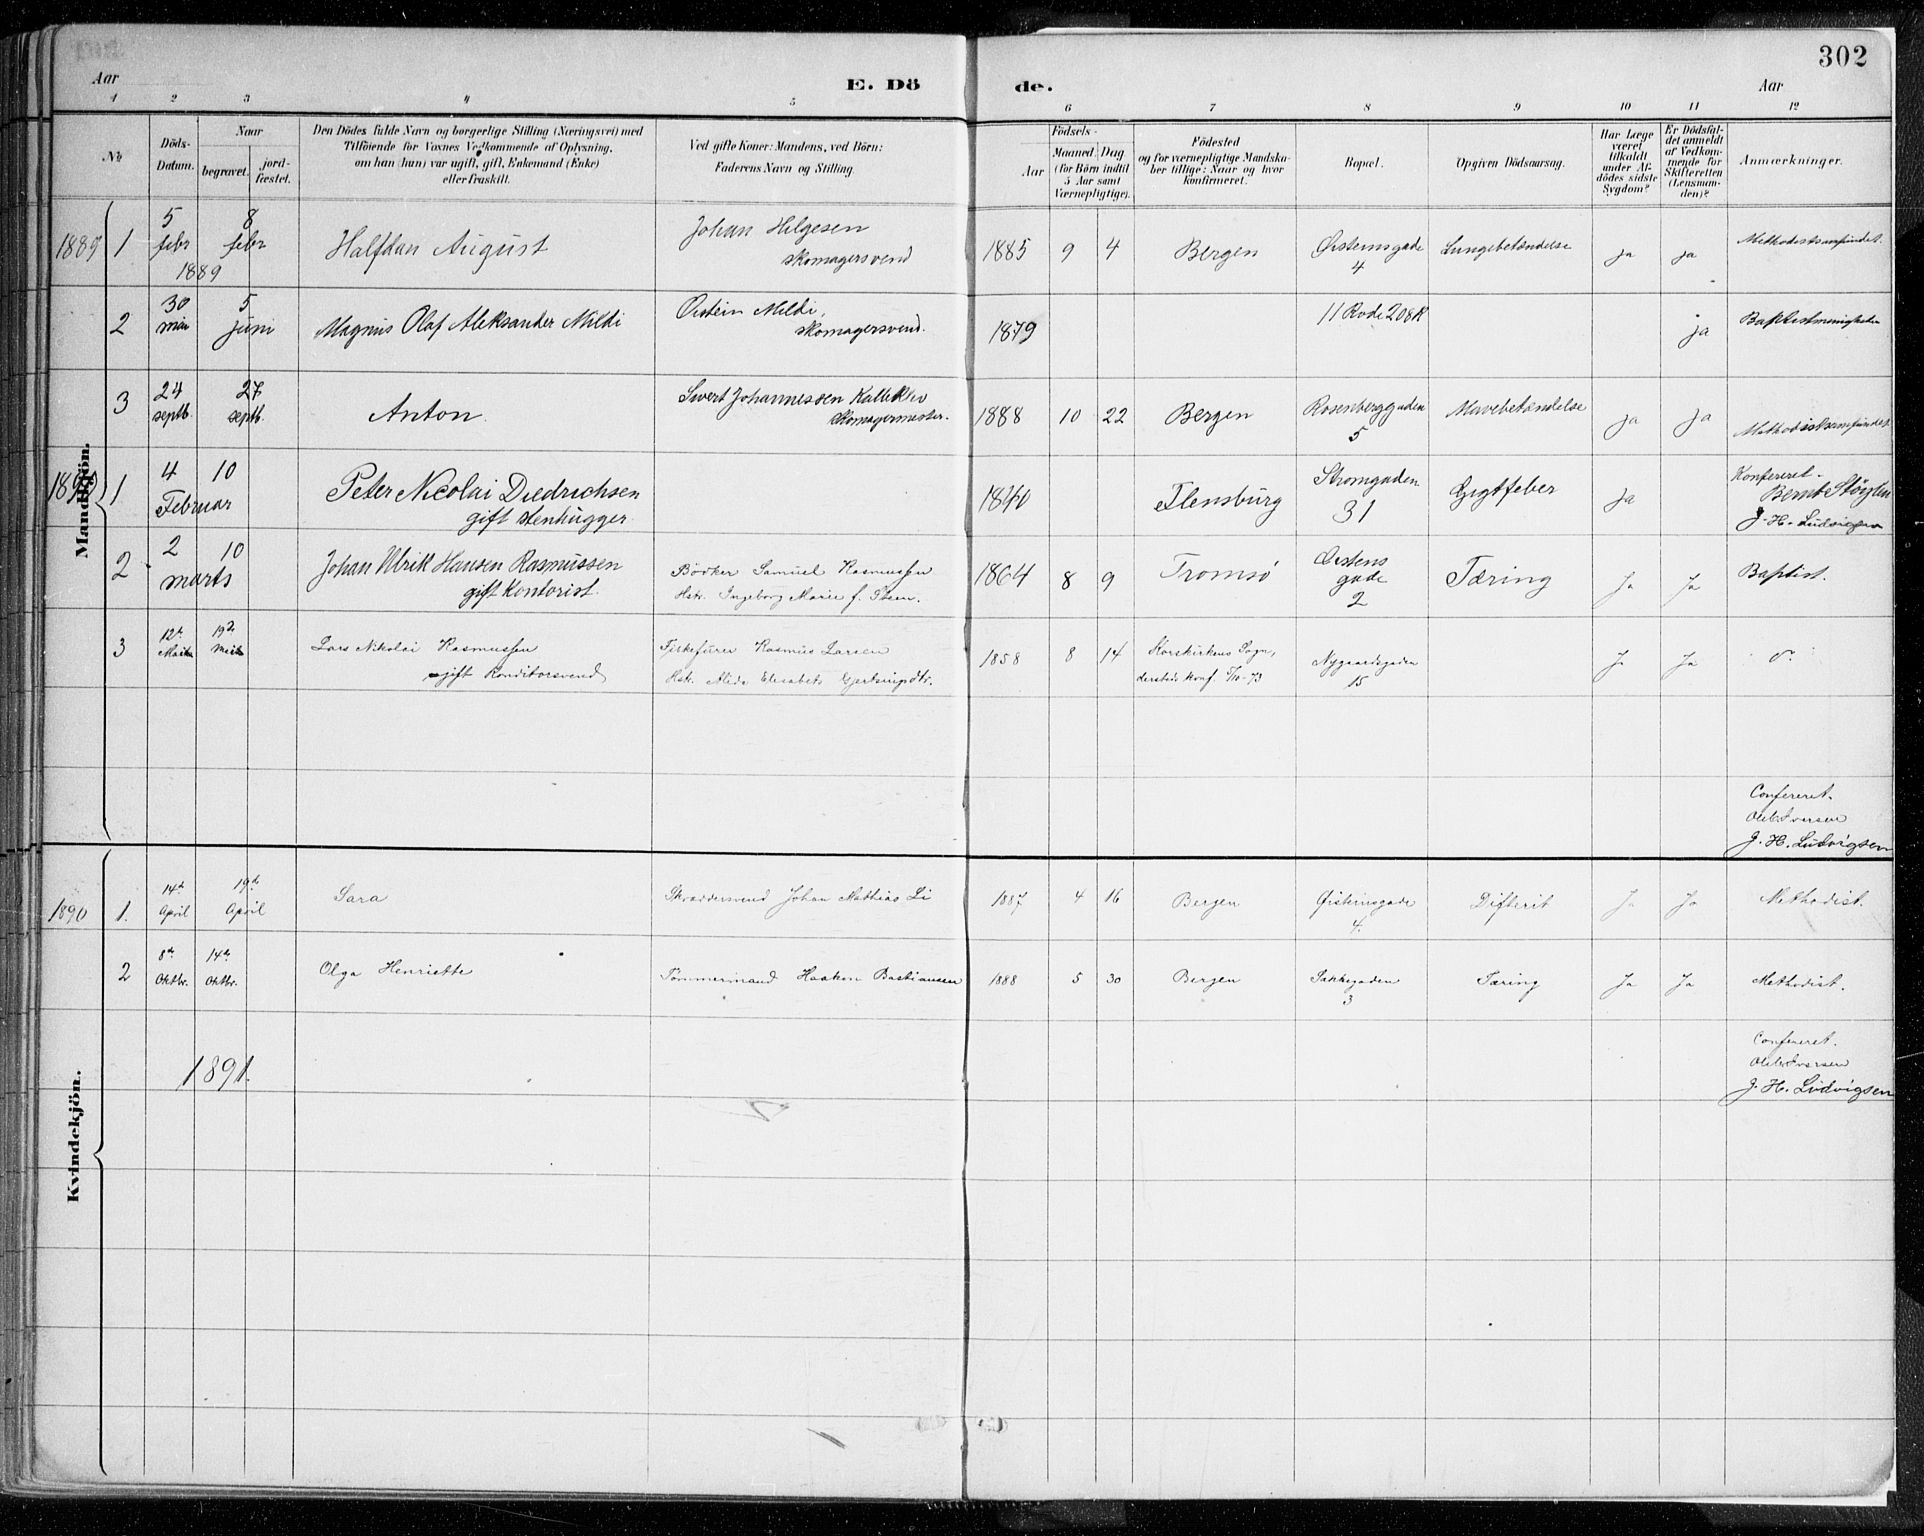 302
Aar
E. Dö
de.
Aar
1 2 3 4 5 6 7 8 9 10 11 12
No
Döds-
Datum.
Naar
begravet.
jord-
fæstet.
Den Dödes fulde Navn og borgerlige Stilling (Næringsvei) med
Tilföiende for Voxnes Vedkommende af Oplysning,
om han (hun) var ugift, gift, Enkemand (Enke)
eller fraskilt.
Ved gifte Koner: Mandens, ved Börn:
Faderens Navn og Stilling.
Födsels-
Aar
Maaned. Dag
(for Börn indtil
5 Aar samt
Værnepligtige).
Födested
og for værnepligtige Mandska-
ber tillige: Naar og hvor
konfirmeret.
Bopæl.
Opgiven Dödsaarsag.
Har Læge
været
tilkaldt
under Af-
dödes sidste
Sygdom?
Er Dödsfal-
det anmeldt
af Vedkom-
mende for
Skifteretten
(Lensman-
den)?
Anmærkninger.
Mandkjön.
1889 1 5 febr 8 febr Halfdan August Johan Helgesen 1885 9 4 Bergen Øisteinsgade Lungebetændelse ja ja Methodistsamfundet.
1889 skomagersvend 4
2 30 mai 5 juni Magnus Olaf Aleksander Mildi Øistein Mildi, 1879 11 Rode 208 R ja Baptistmenigheden
skomagersvend.
3 24 septb. 27 septb. Anton. Sivert Johannessen 1888 10 22 Bergen Rosenberggaden Mavebetændelse ja ja Methodistsamfundet
skomagermester. 5
1 4 10 Peter Nicolai Diedrichsen Flensburg Strømgaden Gigtfeber ja Konfereret.
Februar gift stenhugger. 31 Bernt
J. H. Ludvigsen
2 2 10 Johan Ulrik Hansen Rasmussen Bödker Samuel Rasmussen 1864 8 9 Tromsø Øistens Tæring Ja Ja Baptist.
marts gift Kontorist. Hstr. Ingeborg Marie f. Steen. gade
2
3 12te 19de Lars Nikolai Rasmussen Rasmus Larsen 1858 8 14 Korskirkens Sogn, Nygaardsgaden Ja Ja
gift Konditorsvend Hstr. Elisabeth dersteds konf. 73 15
Confereret.
J. H. Ludvigsen
Kvindekjön.
1890 1. 14de April 19de April Sara Skræddersvend Johan Mathias Li 1887 4 16 Bergen Øisteinsgade Difterit Ja Ja Methodist.
4.
2 8de Oktbr. 14de Oktbr. Olga Henriette Tömmermand Haakon Bastiansen 1888 5 30 Bergen Sakkegaden Tæring Ja Ja Methodist.
3
Confereret.
1891.
J. H. Ludvigsen